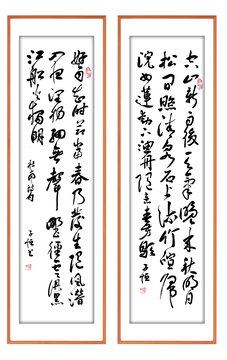 空山新雨後天氣晚來秋明月
松間照清泉石上流竹喧歸
浣女蓮動下漁舟隨意春芳歇 子恒
好雨知時節當春乃發生隨風潛
入夜潤物細無聲野徑雲俱黑
江船火獨明 杜甫詩句
子恒書